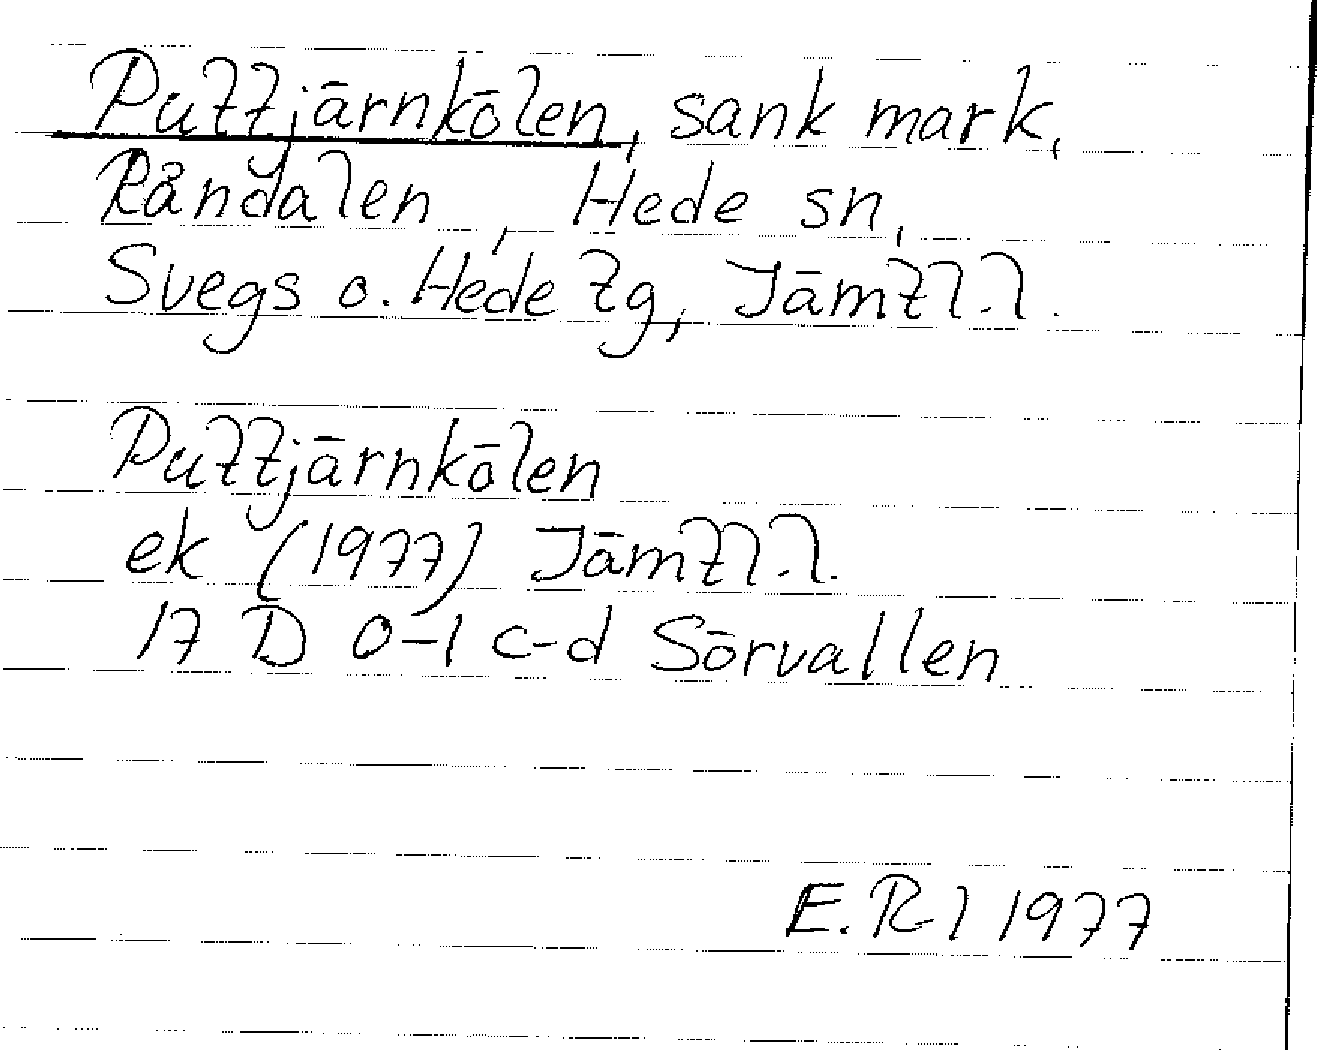 Puttjärnkölen, sank mark,
Råndalen, Hede sn,
Svegs o. Hede tg, Jämtl.l.
Puttjärnkölen
ek (1977) Jämtl.l.
17 D 0-1 c-d Sörvallen
E. Rl 1977